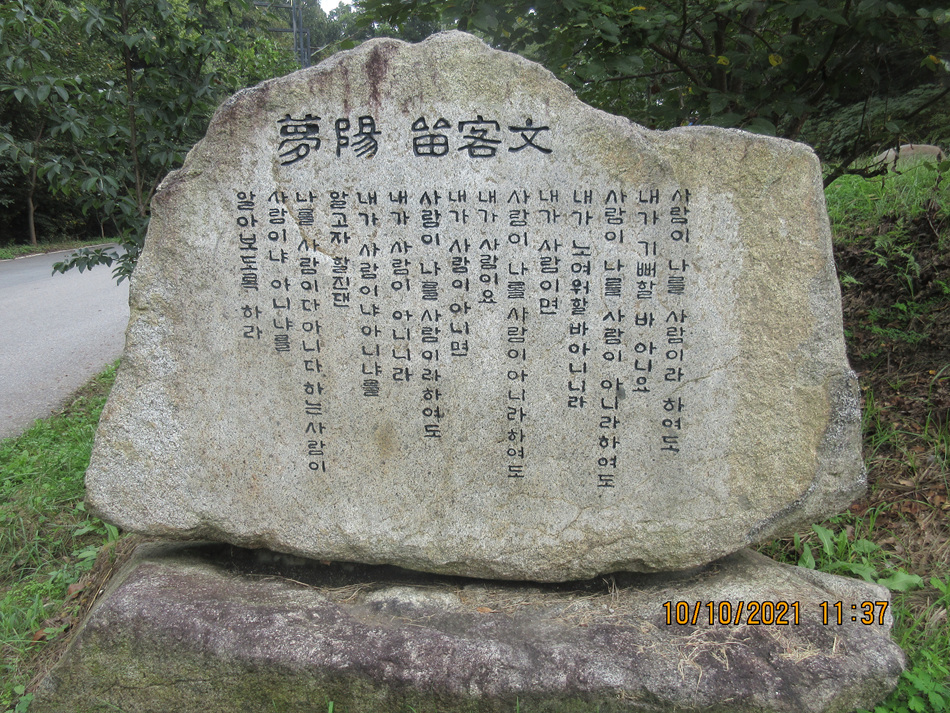 夢陽 客文
사람이 나를 사람이라 하여도
내가 기뻐할 바 아니요
사람이 나를 사람이 아니라하여도
내가 노여워할 바아니니라
내가 사람이면
사람이 나를 사람이아니라하여도
내가 사람이요
내가 사람이 아니면
사람이 나를 사람이라하여도
내가 사람이 아니니라
내가 사람이냐아니냐를
알고자 할진댄
나를 사람이다 아니다하는사람이
사람이냐 아니냐를
알아보도록 하라
10/10/2021 11:37